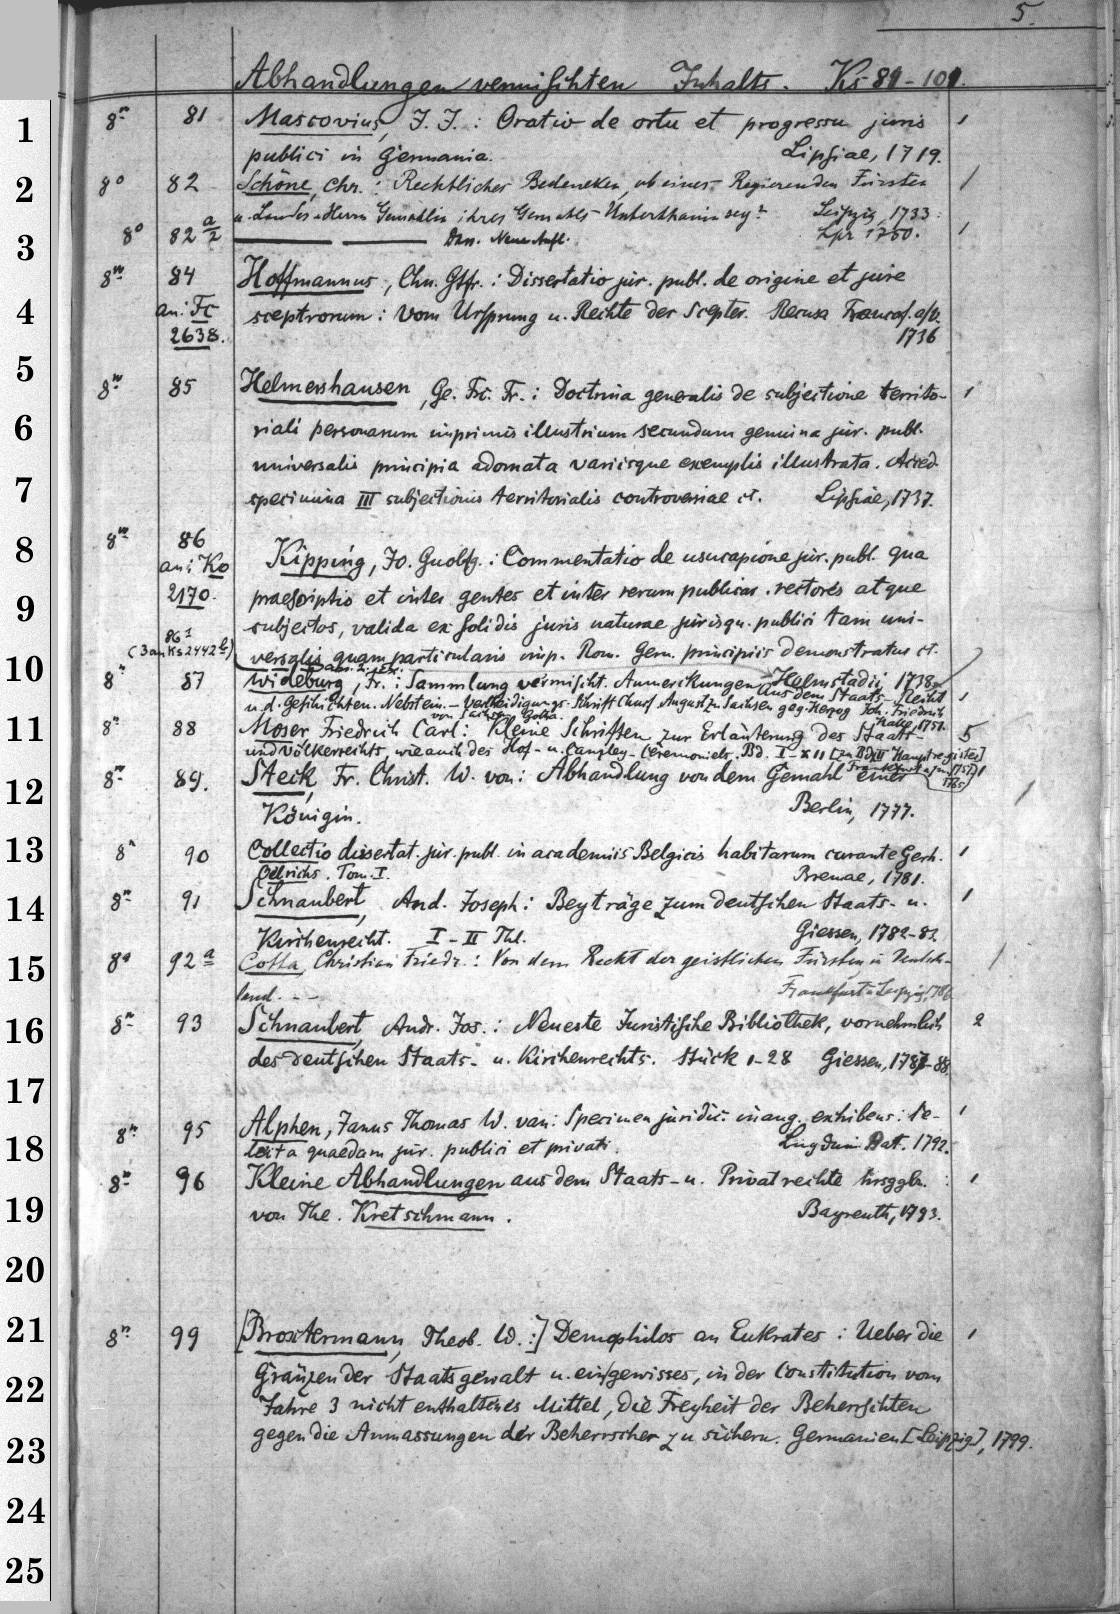 5.
Abhandlungen vermischten Inhalts. Ks 81-101.
8n 81 Mascovius, J. J.: Oratio de ortu et progressu juris 1
publici in Germania. Lipsiae, 1719.
8o 82 Schöne, Chr.: Rechtliches Bedencken, ob eines Regierenden Fürsten 1
u. Landes-Herrn Gemahlin ihres Gemahls Unterthanin sey? Leipzig 1733.
8o 82 a/2 Dass. Neue Aufl. Lpz 1750. 1
8n 84 Hoffmannus, Chn. Gtfr.: Dissertatio jur. publ. de origine et jure
an: Fc sceptrorum: Vom Ursprung u. Rechte der Scepter. Recusa Francof. a/V.
2638. 1736
8n 85 Helmershausen, Ge. Frc. Fr.: Doctrina generalis de subjectione territo- 1
riali personarum imprimis illustrium secundum genuina jur. publ.
universalis principia adornata variisque exemplis illustrata. Acced.
specimina III subjectionis territorialis controversiae ct. Lipsiae, 1737.
8n 86 Kipping, Jo. Guolfg.: Commentatio de usucapione jur. publ. qua
an: Ko
2170. praescriptio et inter gentes et inter rerum publicar. rectores atque
subjectos, valida ex solidis juris naturae jurisqu. publici tam uni-
86 1
(3 an Ks 2442 ) versalis quam particularis imp. Rom. Germ. principiis demonstratur ct.
Helmstadii 1738
8n 87 Wideburg, Fr.: Sammlung vermischt. Anmerkungen aus dem Staats-Recht 1
u. d. Geschichten. Nebst ein. Vertheidigungs-Schrift Churf. August zu Sachsen geg. Herzog Joh. Friedrich
von Sachsen Gotha. Halle, 1751.
8n 88 Moser Friedrich Carl: Kleine Schriften zur Erläuterung des Staats- 5
und Völkerrechts, wie auch des Hof- u. Canzley-Ceremoniels. Bd. I-XII [zu Bd XII Hauptregister]
Frankfurt a/m 1751
1765
8n 89. Steck, Fr. Christ. W. von: Abhandlung von dem Gemahl einer 1
Königin. Berlin, 1777.
8n 90 Collectio dissertat. jur. publ. in academiis Belgicis habitarum curante Gerh. 1
Oelrichs. Tom. I. Bremae, 1781.
8n 91 Schnaubert, And. Joseph: Beyträge zum deutschen Staats- u. 1
Kirchenrecht. I-II Thl. Giessen, 1782-83.
8o 92 a Cotta, Christian Friedr.: Von dem Recht der geistlichen Fürsten in Teutsch- 1
land. - - Frankfurt u Leipzig, 1786
8n 93 Schnaubert, Andr. Jos.: Neueste Juristische Bibliothek, vornehmlich 2
des deutschen Staats- u. Kirchenrechts. Stück 1-28 Giessen, 1787-88.
8n 95 Alphen, Janus Thomas W. van: Specimen juridic. inaug. exhibens: Se- 1
lecta quaedam jur. publici et privati. Lugduni Bat. 1792.
8n 96 Kleine Abhandlungen aus dem Staats- u. Privatrechte hrsggb. 1
von The. Kretschmann. Bayreuth, 1793.
8n 99 [Broxtermann, Theob. W.:] Demophilos an Eukrates: Ueber die 1
Gränzen der Staatsgewalt u. ein gewisses, in der Constitution vom
Jahre 3 nicht enthaltenes Mittel, die Freyheit der Beherrschten
gegen die Anmassungen der Beherrscher zu sichern. Germanien [Leipzig], 1799.
1
2
3
4
5
6
7
8
9
10
11
12
13
14
15
16
17
18
19
20
21
22
23
24
25